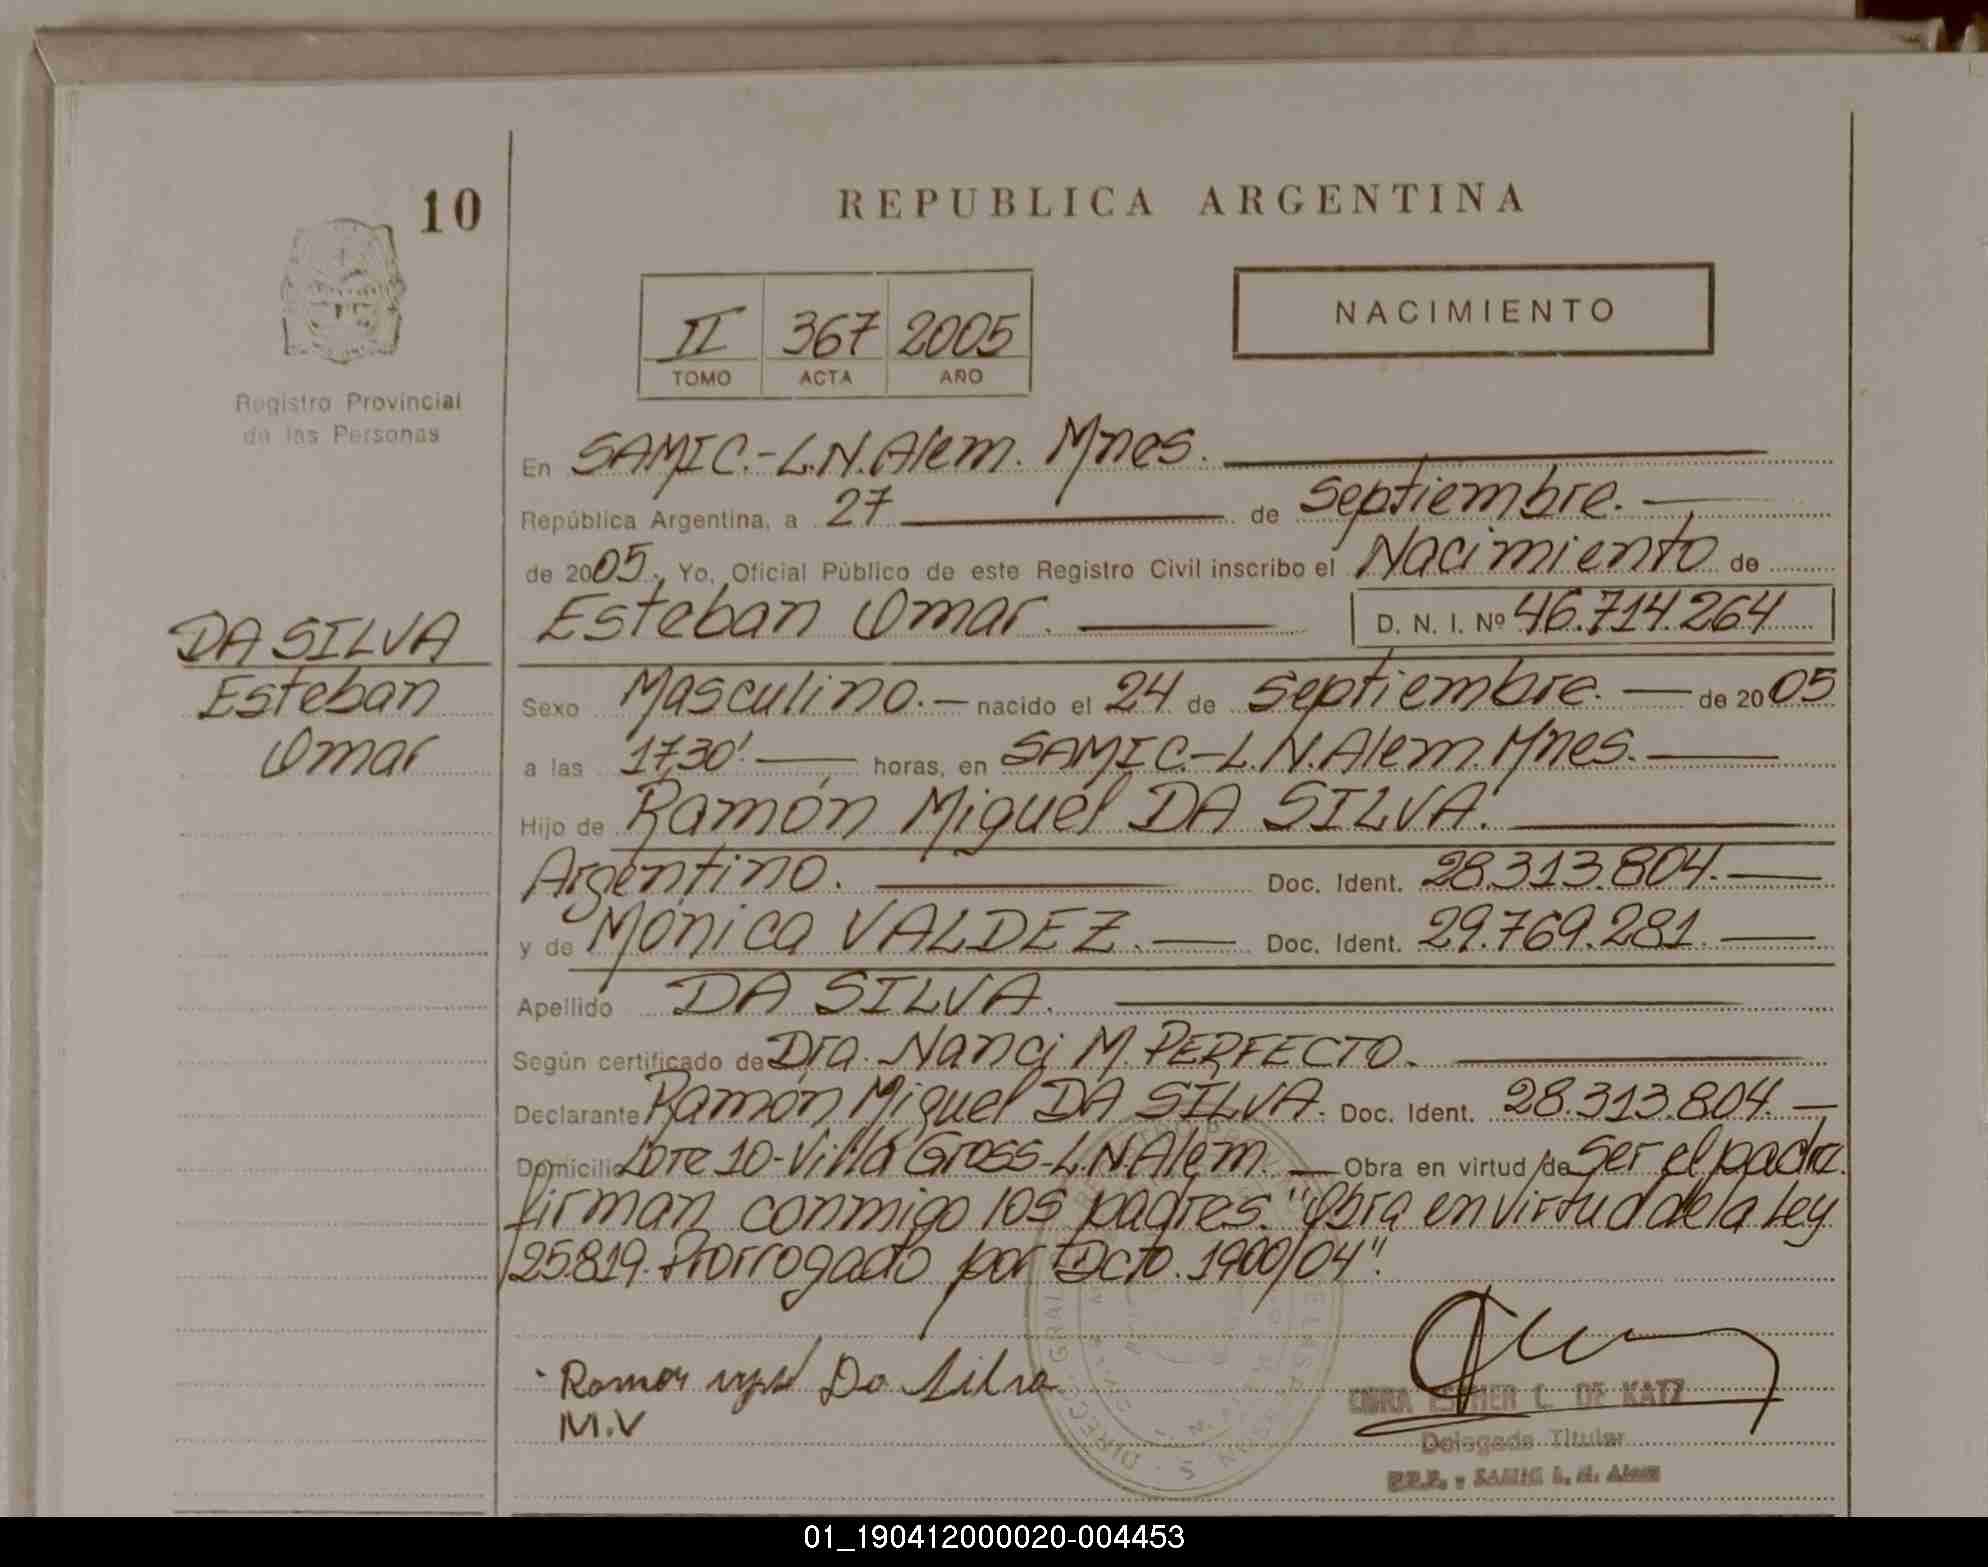 10
REPUBLICA ARGENTINA
Registro Provincial
de las Personas
II 367 2005
TOMO ACTA AÑO
NACIMIENTO
En SAMIC.-L.N.Alem. Mnes.
República Argentina, a 27 de Septiembre.
de 2005., Yo, Oficial Público de este Registro Civil inscribo el Nacimiento de
Esteban Omar. D. N. I. Nº 46.714.264
DA SILVA
Esteban
Omar
Sexo Masculino.- nacido el 24 de Septiembre. de 2005
a las 17,30' horas, en SAMIC.-L.N.Alem. Mnes.
Hijo de Ramón Miguel DA SILVA.
Argentino. Doc. Ident. 28.313.804.
y de Mónica VALDEZ. Doc. Ident. 29.769.281.
Apellido DA SILVA.
Según certificado de Dra. Nanci M. PERFECTO.
Declarante Ramón Miguel DA SILVA. Doc. Ident. 28.313.804.
Domicilio Lote 10-Villa Gross-L.N.Alem. Obra en virtud de Ser el padre.
firman conmigo los padres. "Obra en virtud de la Ley
25819. Prorrogado por Dcto. 1900/04".
Ramon Da Silva
M.V
ESTHER C. DE KATZ
Delegada Titular
SAMIC L. N. Alem
01_190412000020-004453